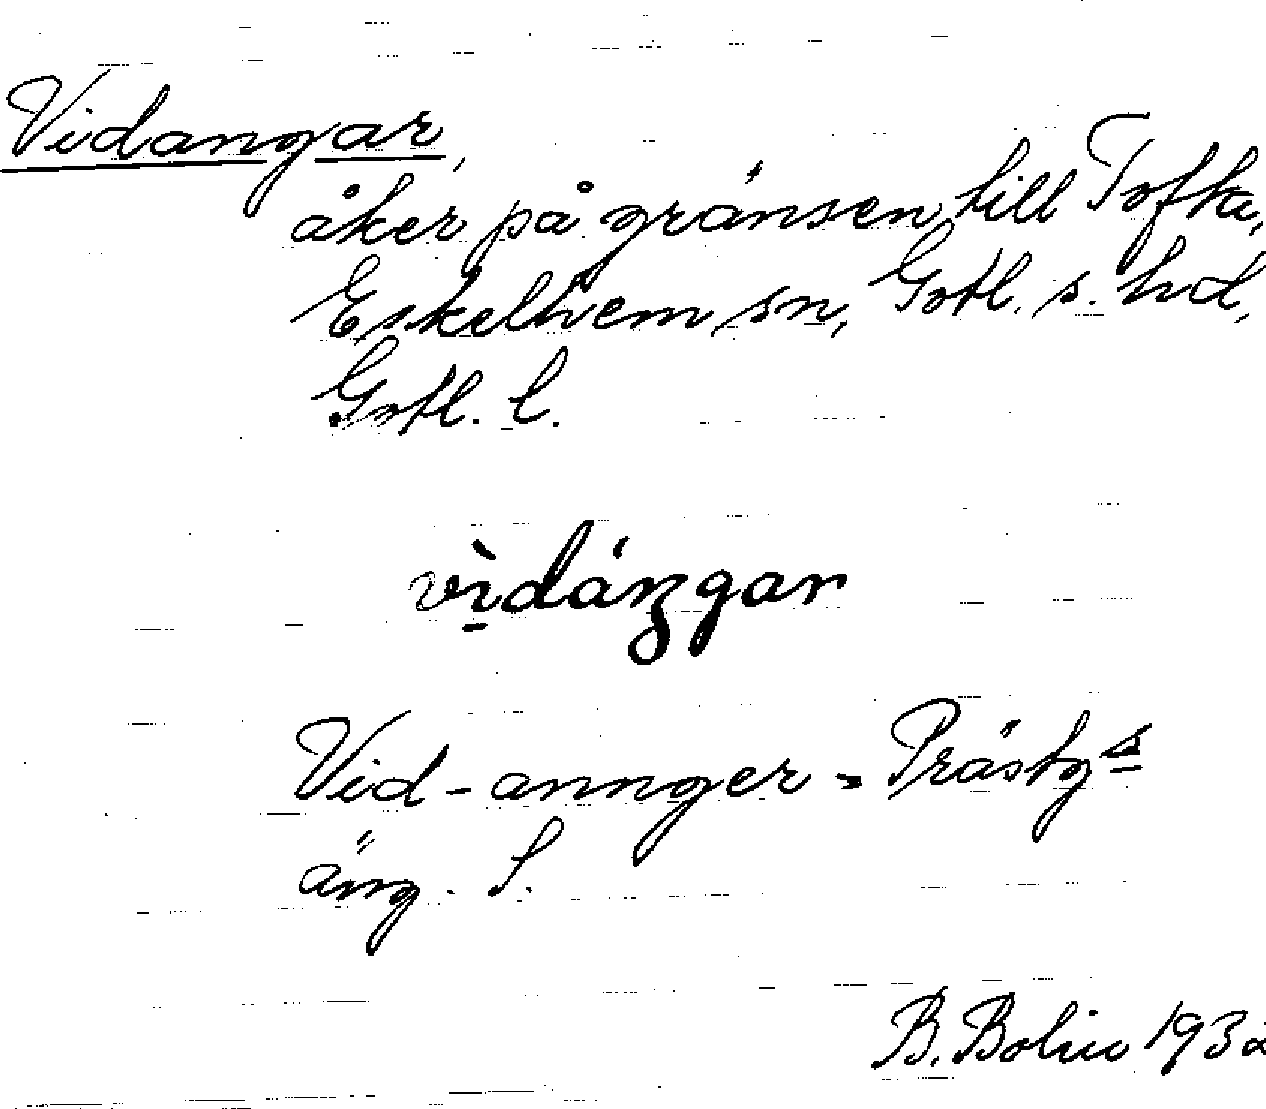 Vidangar,
åker på gränsen till Tofta,
Eskelhem sn, Gotl. s. hd,
Gotl. l.
vìdáŋgar
Vid-annger = Prästg:s
äng. S.
B. Bolin 1932